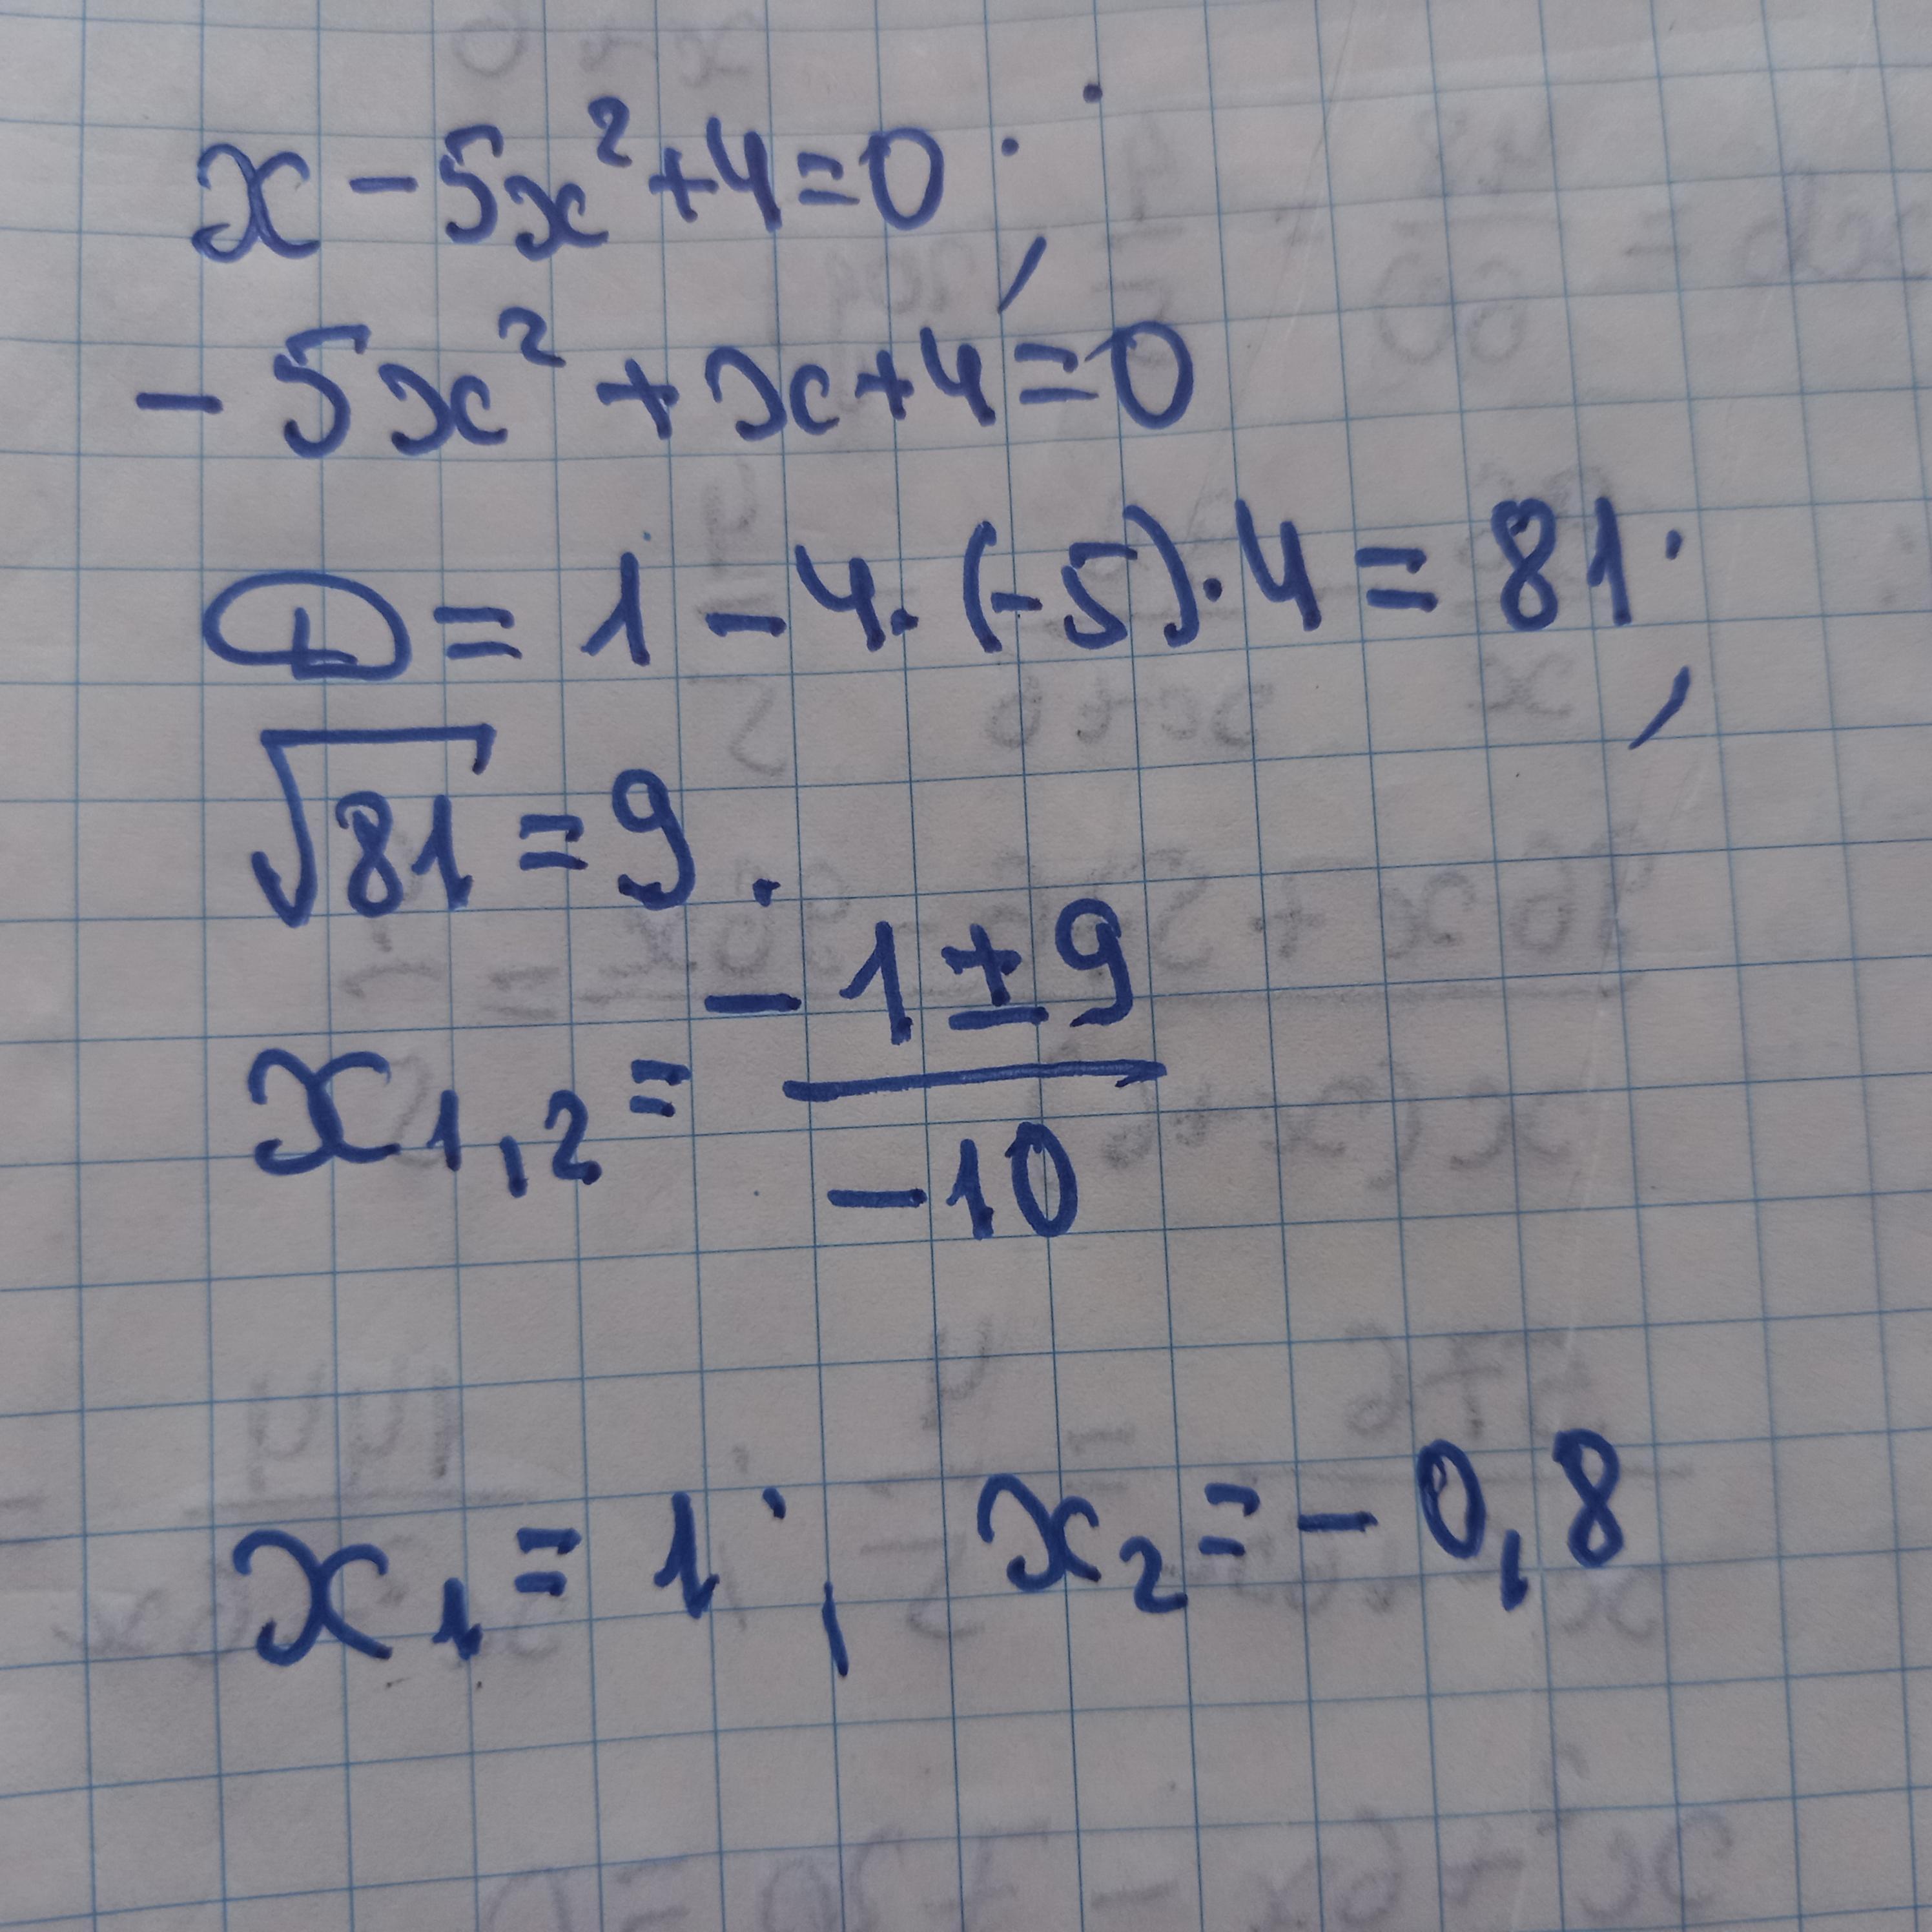 x - 5x² + 4 = 0;
- 5x² + x + 4 = 0
D = 1 - 4 · (-5) · 4 = 81;
√81 = 9.
x₁,₂ = (-1 ± 9) / (-10)
x₁ = 1; x₂ = - 0,8